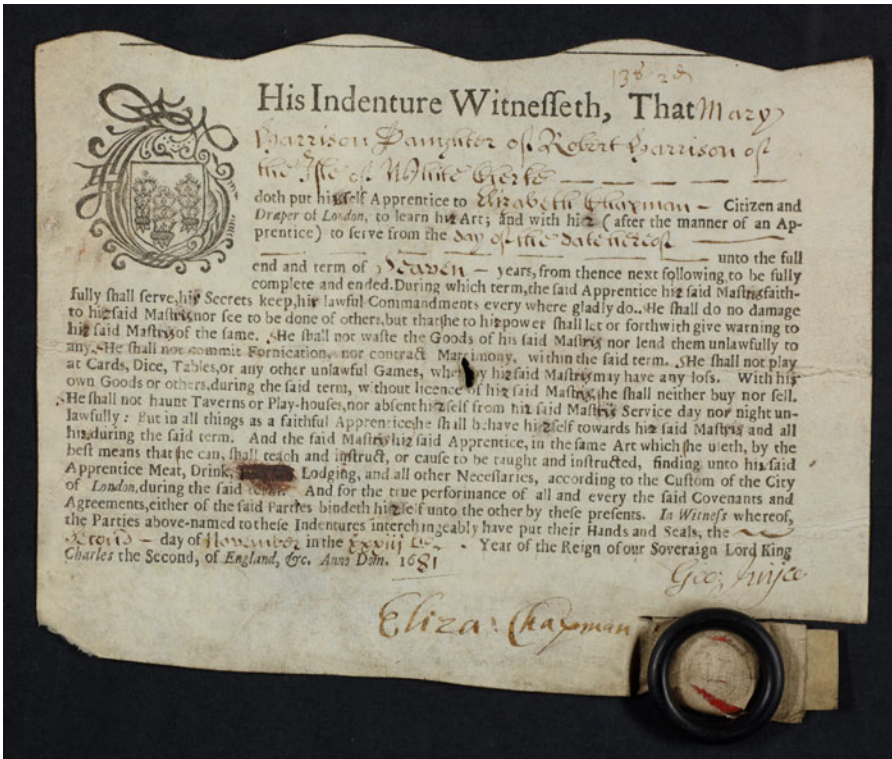 138 2d
His Indenture Witneſſeth, That Mary
Harrison Daughter of Robert Harrison of
the Isle of White Clerke
doth put hirſelf Apprentice to Elizabeth Chapman – Citizen and
Draper of London, to learn hir Art; and with hir (after the manner of an Ap-
prentice) to ſerve from the day of the date hereof
unto the full
end and term of Seaven – years, from thence next following, to be fully
complete and ended. During which term, the ſaid Apprentice hir ſaid Mastris faith-
fully ſhall ſerve, hir Secrets keep, hir lawful Commandments every where gladly do. SHe ſhall do no damage
to hir ſaid Mastris nor ſee to be done of others, but that ſhe to hir power ſhall let or forthwith give warning to
hir ſaid Mastris of the ſame. SHe ſhall not waſte the Goods of his ſaid Mastris nor lend them unlawfully to
any. SHe ſhall not commit Fornication, nor contract Matrimony, within the ſaid term. SHe ſhall not play
at Cards, Dice, Tables, or any other unlawful Games, whereby hir ſaid Mastris may have any loſs. With hir
own Goods or others, during the ſaid term, without licence of hir ſaid Mastris, ſhe ſhall neither buy nor ſell.
SHe ſhall not haunt Taverns or Play-houſes, nor abſent hirſelf from hir ſaid Mastris Service day nor night un-
lawfully: But in all things as a faithful Apprentice ſhe ſhall behave hirſelf towards hir ſaid Mastris and all
hir, during the ſaid term. And the ſaid Mastris hir ſaid Apprentice, in the ſame Art which ſhe uſeth, by the
beſt means that ſhe can, ſhall teach and inſtruct, or cauſe to be taught and inſtructed, finding unto hir ſaid
Apprentice Meat, Drink, Lodging, and all other Neceſſaries, according to the Cuſtom of the City
of London, during the ſaid term. And for the true performance of all and every the ſaid Covenants and
Agreements, either of the ſaid Parties bindeth hirſelf unto the other by theſe preſents. In Witneſs whereof,
the Parties above-named to theſe Indentures interchangeably have put their Hands and Seals, the
Second – day of November in the xxxiij Year of the Reign of our Soveraign Lord King
Charles the Second, of England, &c. Anno Dom. 1681
Eliza: Chapman